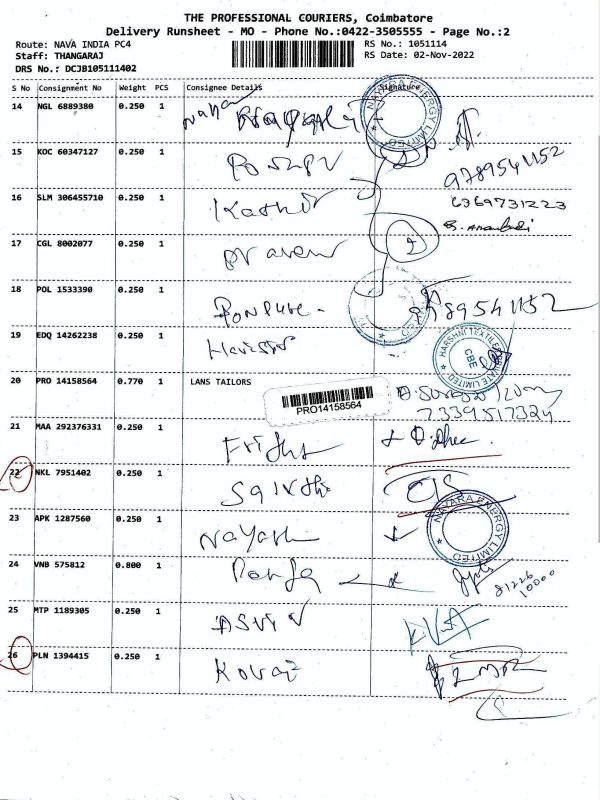 THE PROFESSIONAL COURIERS, Coimbatore
Delivery Runsheet - MO - Phone No.:0422-3505555 - Page No.:2
Route: NAVA INDIA PC4
RS No.: 1051114
Staff: THANGARAJ
RS Date: 02-Nov-2022
DRS No.: DCJB105111402
S No Consignment No Weight PCS Consignee Details Signature
14 NGL 6889380 0.250 1
NAYARA ENERGY LIMITED
15 KOC 60347127 0.250 1
9789541152
16 SLM 306455710 0.250 1 Kashir
6369731223
17 CGL 8002077 0.250 1 Praveen
2
18 POL 1533390 0.250 1 Ponpure
9789541152
19 EDQ 14262238 0.250 1
HARSHNI TEXTILE PRIVATE LIMITED
CBE
20 PRO 14158564 0.770 1 LANS TAILORS
PRO14158564
7339517324
21 MAA 292376331 0.250 1
22 NKL 7951402 0.250 1
23 APK 1287560 0.250 1
NAYARA ENERGY LIMITED
24 VNB 575812 0.800 1
81226
10000
25 MTP 1189305 0.250 1
26 PLN 1394415 0.250 1 Kovai